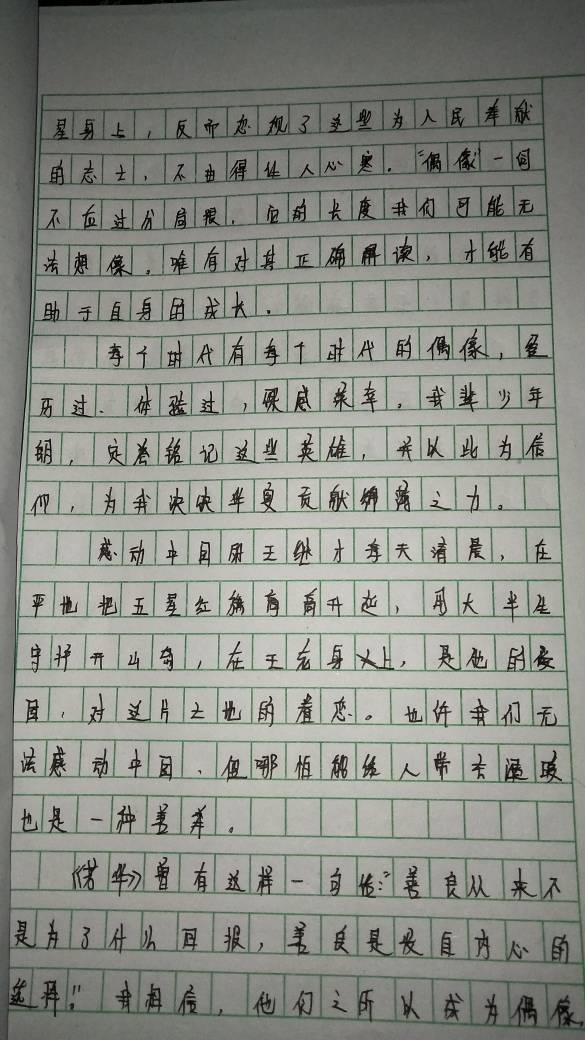 星身上，反而忽视了这些为人民奉献
的志士，不由得使人心寒。“偶像”一词
不应过分局限，它的长度我们可能无
法想像。唯有对其正确解读，才能有
助于自身的成长。
每个时代有每个时代的偶像，经
历过、体验过，倍感荣幸。我辈少年
朝，定当铭记这些英雄，并以此为信
仰，为我泱泱华夏贡献绵薄之力。
感动中国王继才每天清晨，在
平地把五星红旗高高升起，用大半生
守护开山岛，在王老身上，是他的爱
国，对这片土地的眷恋。也许我们无
法感动中国、但哪怕能给人带去温暖
也是一种善举。
《芳华》曾有这样一句话：“善良从来不
是为了什么回报，善良是发自内心的
选择。”我相信，他们之所以成为偶像，